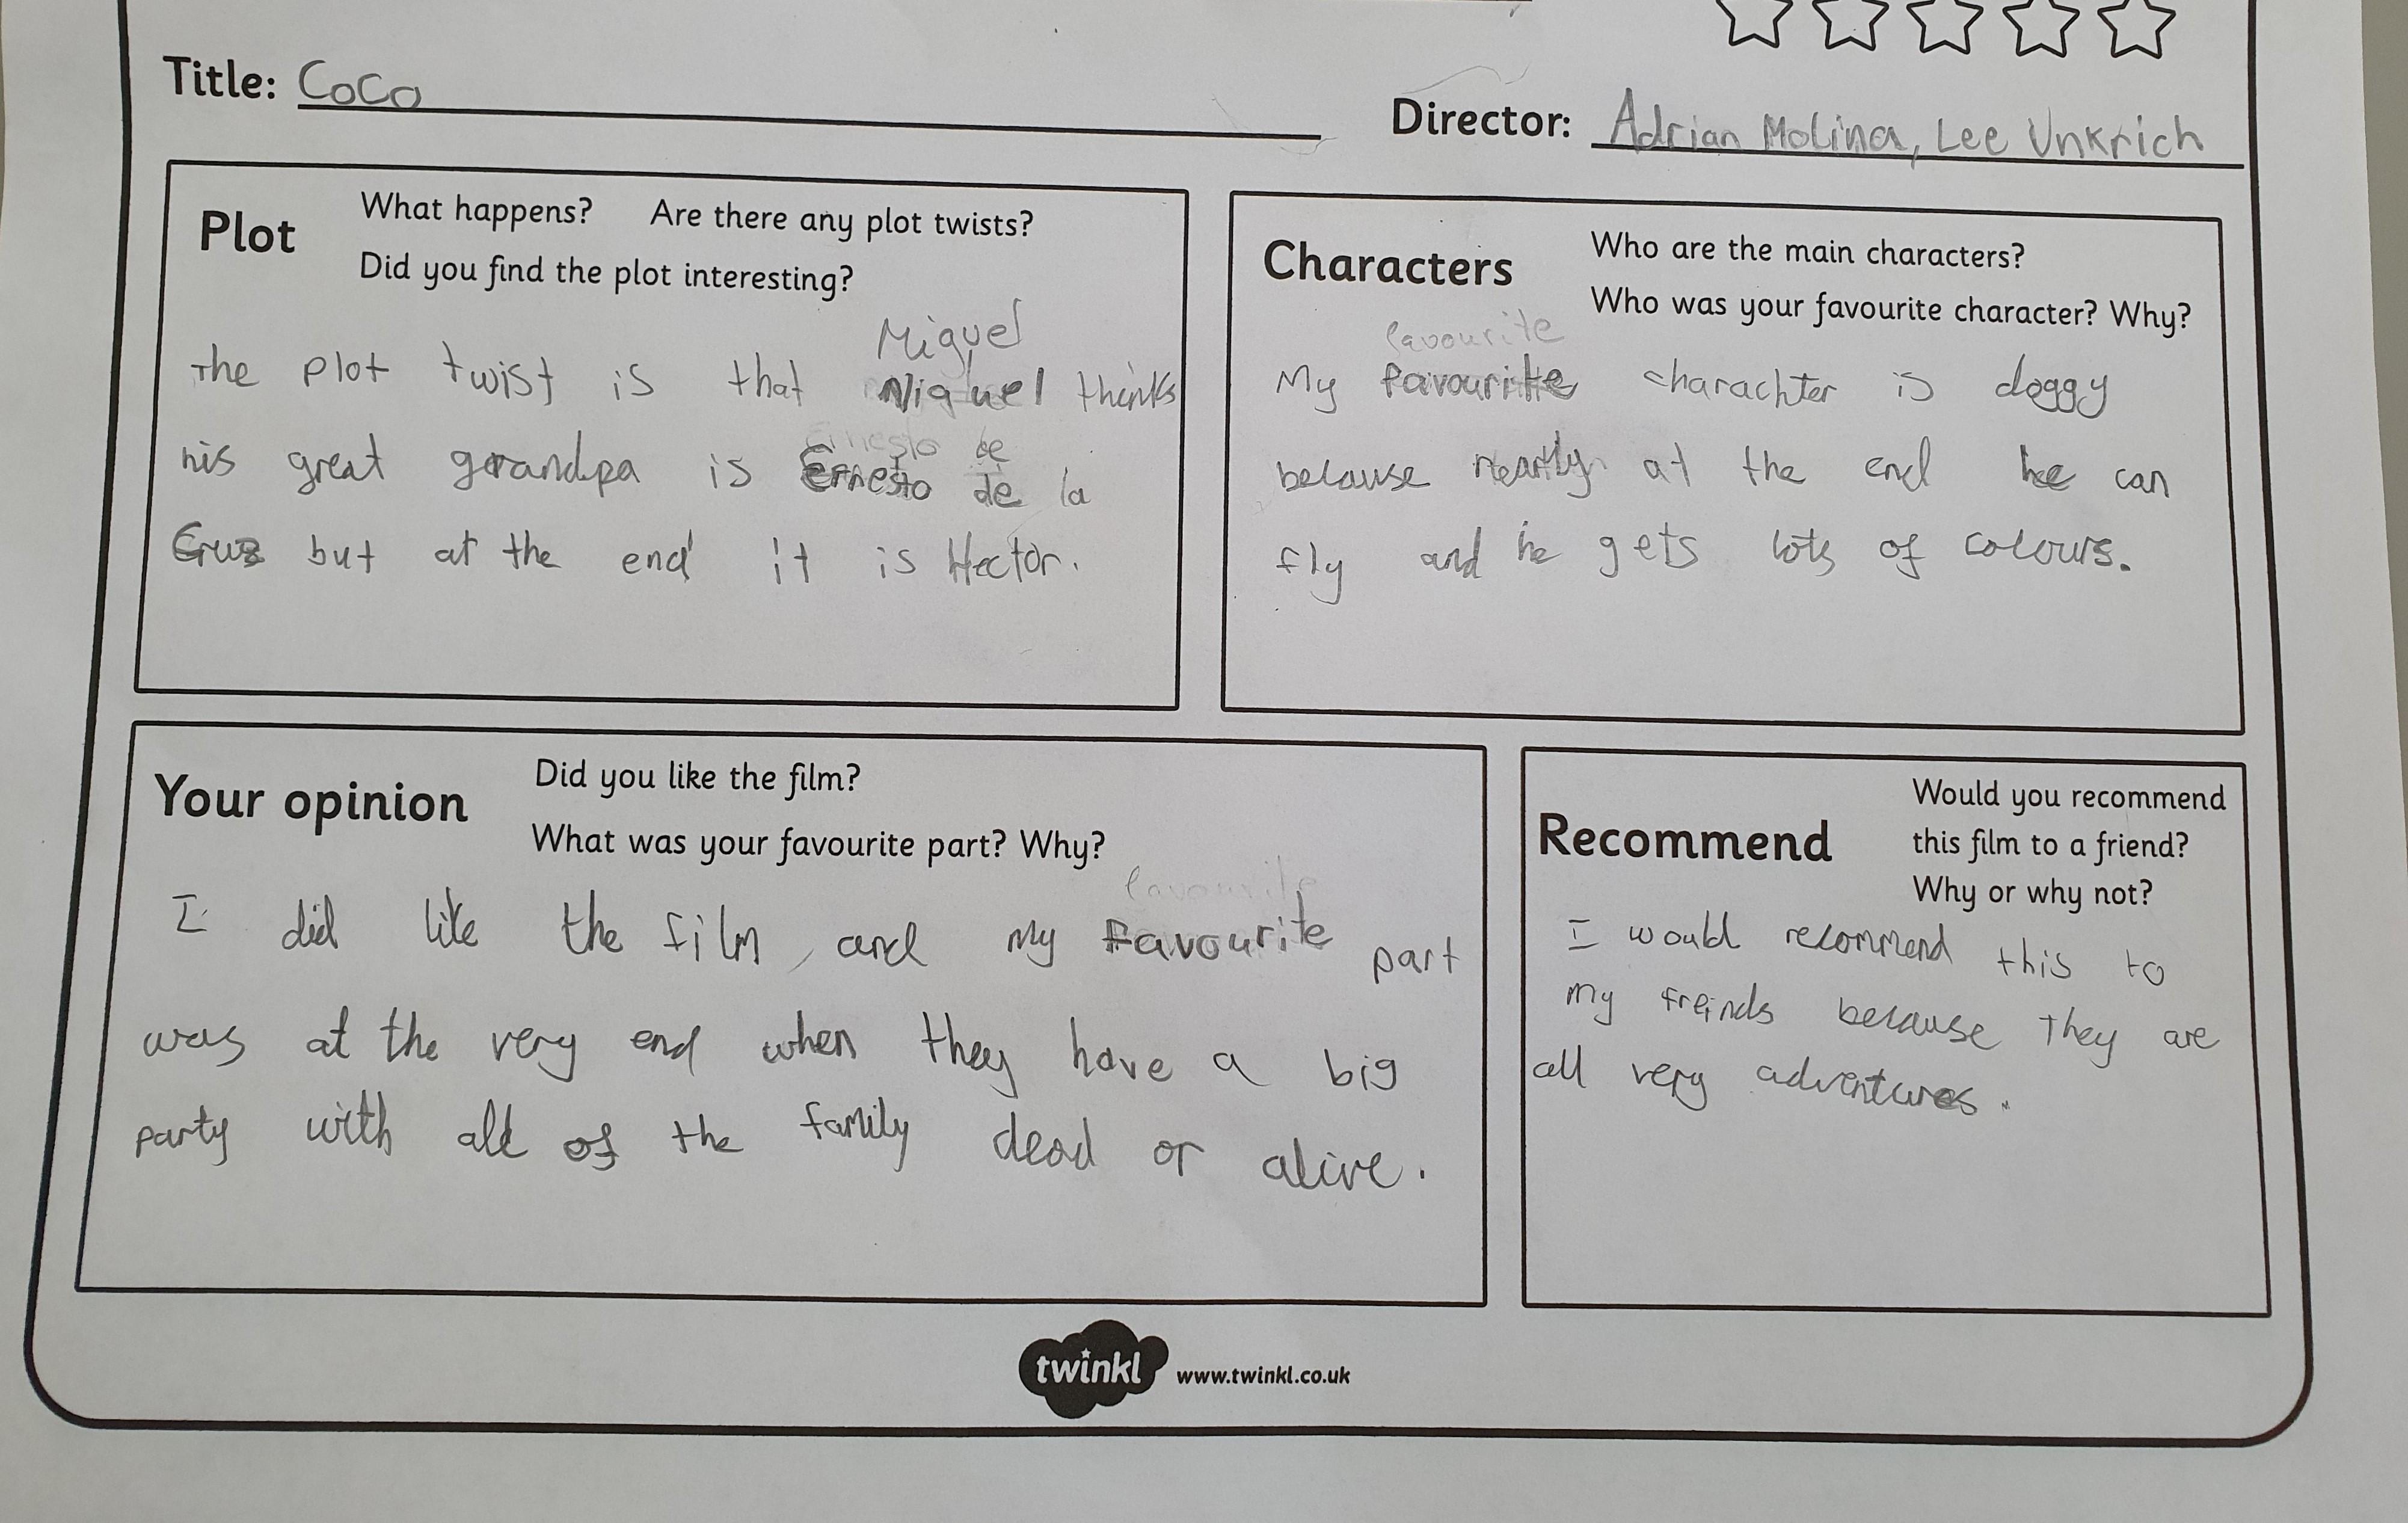 Title: Coco
Director: Adrian Molina, Lee Unkrich
Plot
What happens? Are there any plot twists?
Did you find the plot interesting?
Miguel
The plot twist is that Miguel thinks
Ernesto de
his great grandpa is Ernesto de la
Cruz but at the end it is Hector.
Characters
Who are the main characters?
Who was your favourite character? Why?
favourite
My favourite charachter is doggy
because nearly at the end he can
fly and he gets lots of colours.
Your opinion
Did you like the film?
What was your favourite part? Why?
favourite
I did like the film, and my favourite part
was at the very end when they have a big
party with all of the family dead or alive.
Recommend
Would you recommend
this film to a friend?
Why or why not?
I would recommend this to
my freinds because they are
all very adventures.
twinkl www.twinkl.co.uk